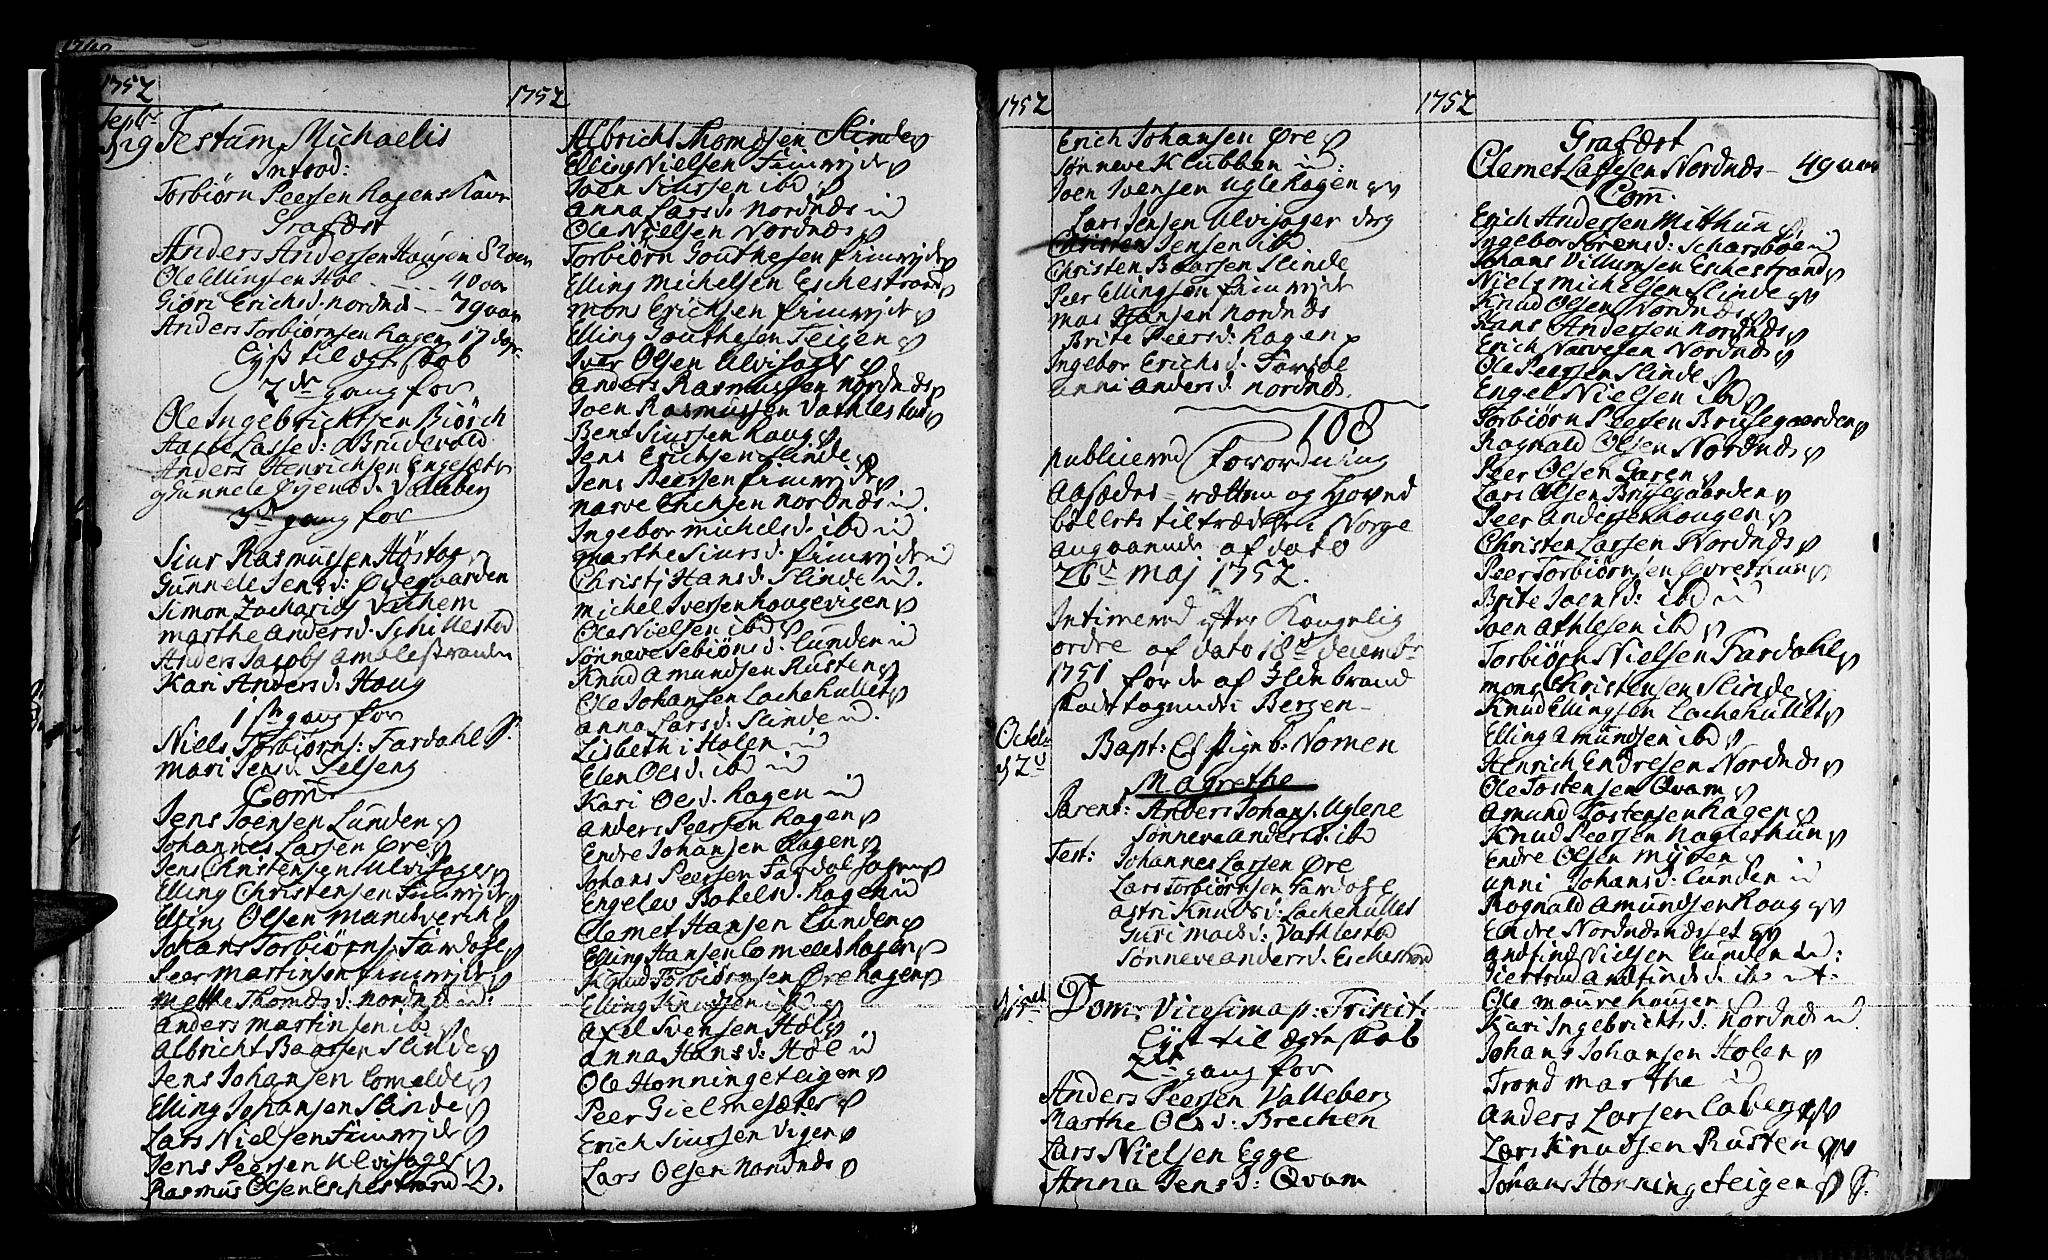 1752
Septbr
d 29 Festum Michaelis
Introd:
Torbiørn Peersen Hagens Kone
Grafæst
Anders Andersen Haugen 82 aar
Ole Ellingsen Høl - - - 40 aar
Giøri Erichsd: Nordnæs - - 79 aar
Anders Torbiørnsen Hagen 17 dage
Lyst til ægteskab
2den gang for
Ole Ingebrichtsen Biørch
Aaste Lassed: Brudevold
Anders Henrichsen Engesæter
Gunnele Øjensd: Valleberg
3die gang for
Siur Rasmussen Høstog
Gunnele Jensd: Ødegaarden
Simon Zacharias Vichem
Marthe Andersd: Schillestad
Anders Jacobs Amblestranden
Kari Andersd: Houg
1ste gang for
Niels Torbiørns: Fardahl
Mari Jensd: Selseng
Com
Jens Joensen Lunden
Johannes Larsen Øre
Jens Christensen Ulvisager
Elling Christensen Fimreite
Elling Olsen Mandverch
Johans Torbiørns. Fardale
Peer Martinsen Fimreite
Mette Thomæsd: Nordnæs
Anders Martinsen ibd
Albricht Baarsen Slinde
Jens Johansen Lomelde
Elling Johansen Slinde
Lars Nielsen Fimreite
Jens Peersen Ulvisager
Rasmus Olsen Eschestrand
1752
Albricht Thomæsen Slinde
Elling Nielsen Fimreite
Joen Siursen ibd
Anna Larsd: Nordnæs
Ole Nielsen Nordnæs
Torbiørn Gouthesen Fimreite
Elling Michelsen Eschestrand
Mons Erichsen Fimreite
Elling Gouthesen Teigen
Iver Olsen Ulvisager
Anders Rasmussen Nordnæs
Joen Rasmussen Vathlestad
Bent Siursen Houg
Jens Erichsen Slinde
Jens Peersen Fimreite
Narve Erichsen Nordnæs
Ingebor Michelsd: ibd
Marthe Siursd: Fimreite
Christj Hansd: Slinde
Michel Iversen Hougevigen
Ole Nielsen ibd
Sønneve Sebiørnsd: Lunden
Knud Amundsen Rusten
Ole Johansen Lachehullet
Anna Larsd: Slinde
Lisbeth i Holen
Elen Olsd: ibd
Kari Olsd: Hagen
Anders Peersen Hagen
Endre Johansen Hagen
Johans Peersen Fardalsagen
Engelev Botelsd: Hagen
Clemet Hansen Lunden
Elling Hansen Lomeldshagen
Knud Torbiørnsen Ørehagen
Elling Knudsen ibd
Axel Svensen Høl
Anna Hansd: Høl
Ole Honningeteigen
Peer Gielmesæter
Erich Siursen Vigen
Lars Olsen Nordnæs
1752
Erich Johansen Øre
Sønneve Klubben
Joen Ivensen Uglehagen
Lars Jensen Ulvisager
Christen Jensen ibd
Christen Baarsen Slinde
Peer Ellingsen Fimreite
Mas Hansen Nordnæs
Brite Peersd: Hagen
Ingebor Erichsd: Fardal
Anni Andersd: Nordnæs
108
Publicered Forordning
Aasædes-rætten og Hoved
bøllets tiltrædelse i Norge
angaaende af dato
26de Maj 1752.
Intimered efter Kongelig
ordre af dato 18de Decembr
1751 for de af Ildebrand
skadetagende i Bergen -
Octobr
d 2de Bapt: Et Pigeb: Nomen
Magrethe
Parent: Anders Johans: Uglene
Sønneve Andersd: ibd
Test: Johannes Larsen Øre
Lars Torbiørnsen Fardale
Astri Knudsd: Lachehullet
Guri Madsd: Vathlestad
Sønneve Andersd: Eschestrand
Dom: Vicesima p: Trinit:
Lyst til ægteskab
2den gang for
Anders Peersen Valleberg
Marthe Olsd: Brechen
Lars Nielsen Egge
Anna Jensd: Qvam
1752
Grafæst
Clemet Lassesen Nordnæs - 49 aar
Com.
Erich Andersen Mitthun
Ingebor Sørensd: Scharsbøe
Johans Villumsen Eschestrand
Niels Michelsen Slinde
Knud Olsen Nordnæs
Hans Andersen Nordnæs
Erich Narvesen Nordnæs
Ole Peersen Slinde
Engel Nielsen ibd
Torbiørn Peersen Brusegaarden
Rognald Olsen Nordnæs
Peer Olsen Garen
Lars Olsen Brusegaarden
Peer Andersen Haugen
Christen Larsen Nordnæs
Peer Torbiørnsen Evrethun
Brite Joensd: ibd
Joen Athlesen ibd
Torbiørn Nielsen Fardahl
Mons Christensen Slinde
Knud Ellingsen Lachehullet
Elling Amundsen ibd
Henrich Endresen Nordnæs
Ole Tostensen Qvam
Amund Tostensen Hagen
Knud Peersen Naglethun
Endre Olsen Myren
Unni Johansd: Lunden
Rognald Amundsen Houg
Endre Nordnæsnæset
Andfind Nielsen Lunden
Giertrud Andfindsd: ibd
Ole Maurehaugen
Kari Ingebrichtsd: Nordnæs
Johans Johansen Holen
Trond Marthe
Anders Larsen Laberg
Lars Knudsen Rusten
Johans Horningeteigen